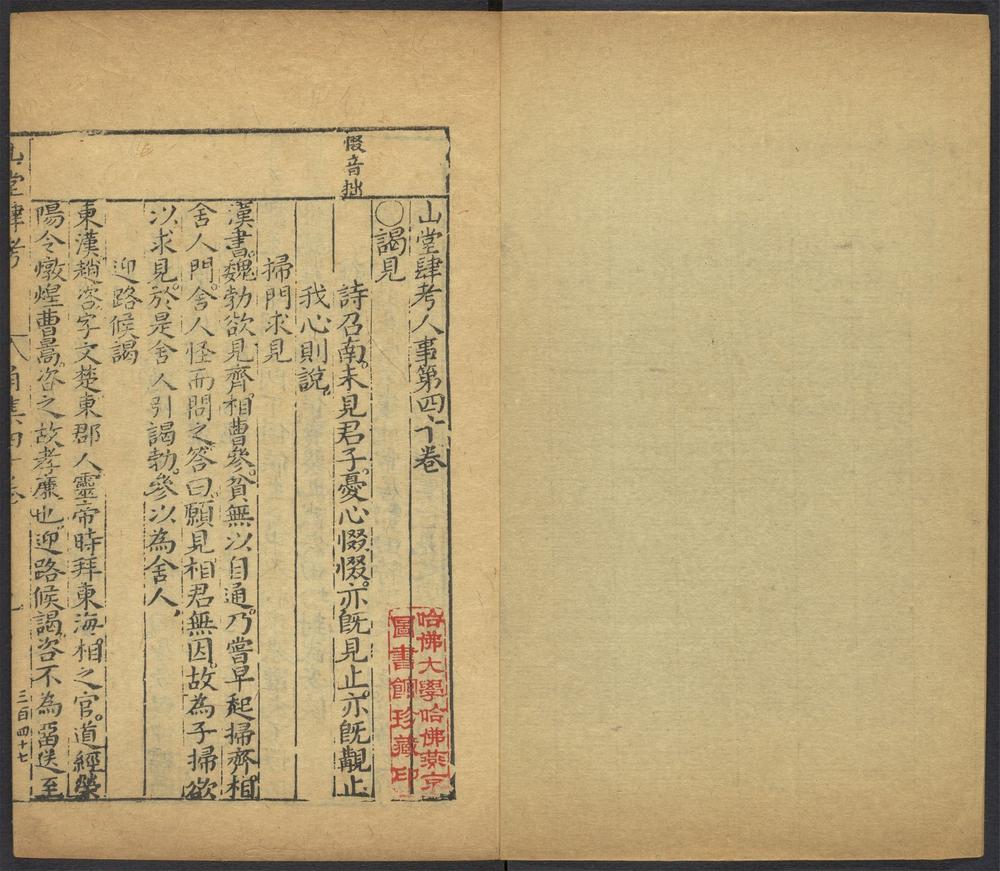 惙音拙
山堂肆考人事第四十卷
○謁見
詩召南。未見君子。憂心惙惙。亦既見止。亦既覯止
我心則說。
掃門求見
漢書。魏勃欲見齊相曹參。貧無以自通。乃嘗早起掃齊相
舍人門。舍人怪而問之。答曰。願見相君無因。故為子掃。欲
以求見。於是舍人引謁勃。參以為舍人。
迎路候謁
東漢趙咨字文楚東郡人。靈帝時拜東海相之官。道經滎
陽令燉煌曹暠。咨之故孝廉也。迎路候謁。咨不為留。送至
山堂肆考
角集四十卷
三百四十七
哈佛大學哈佛燕京
圖書館珍藏印